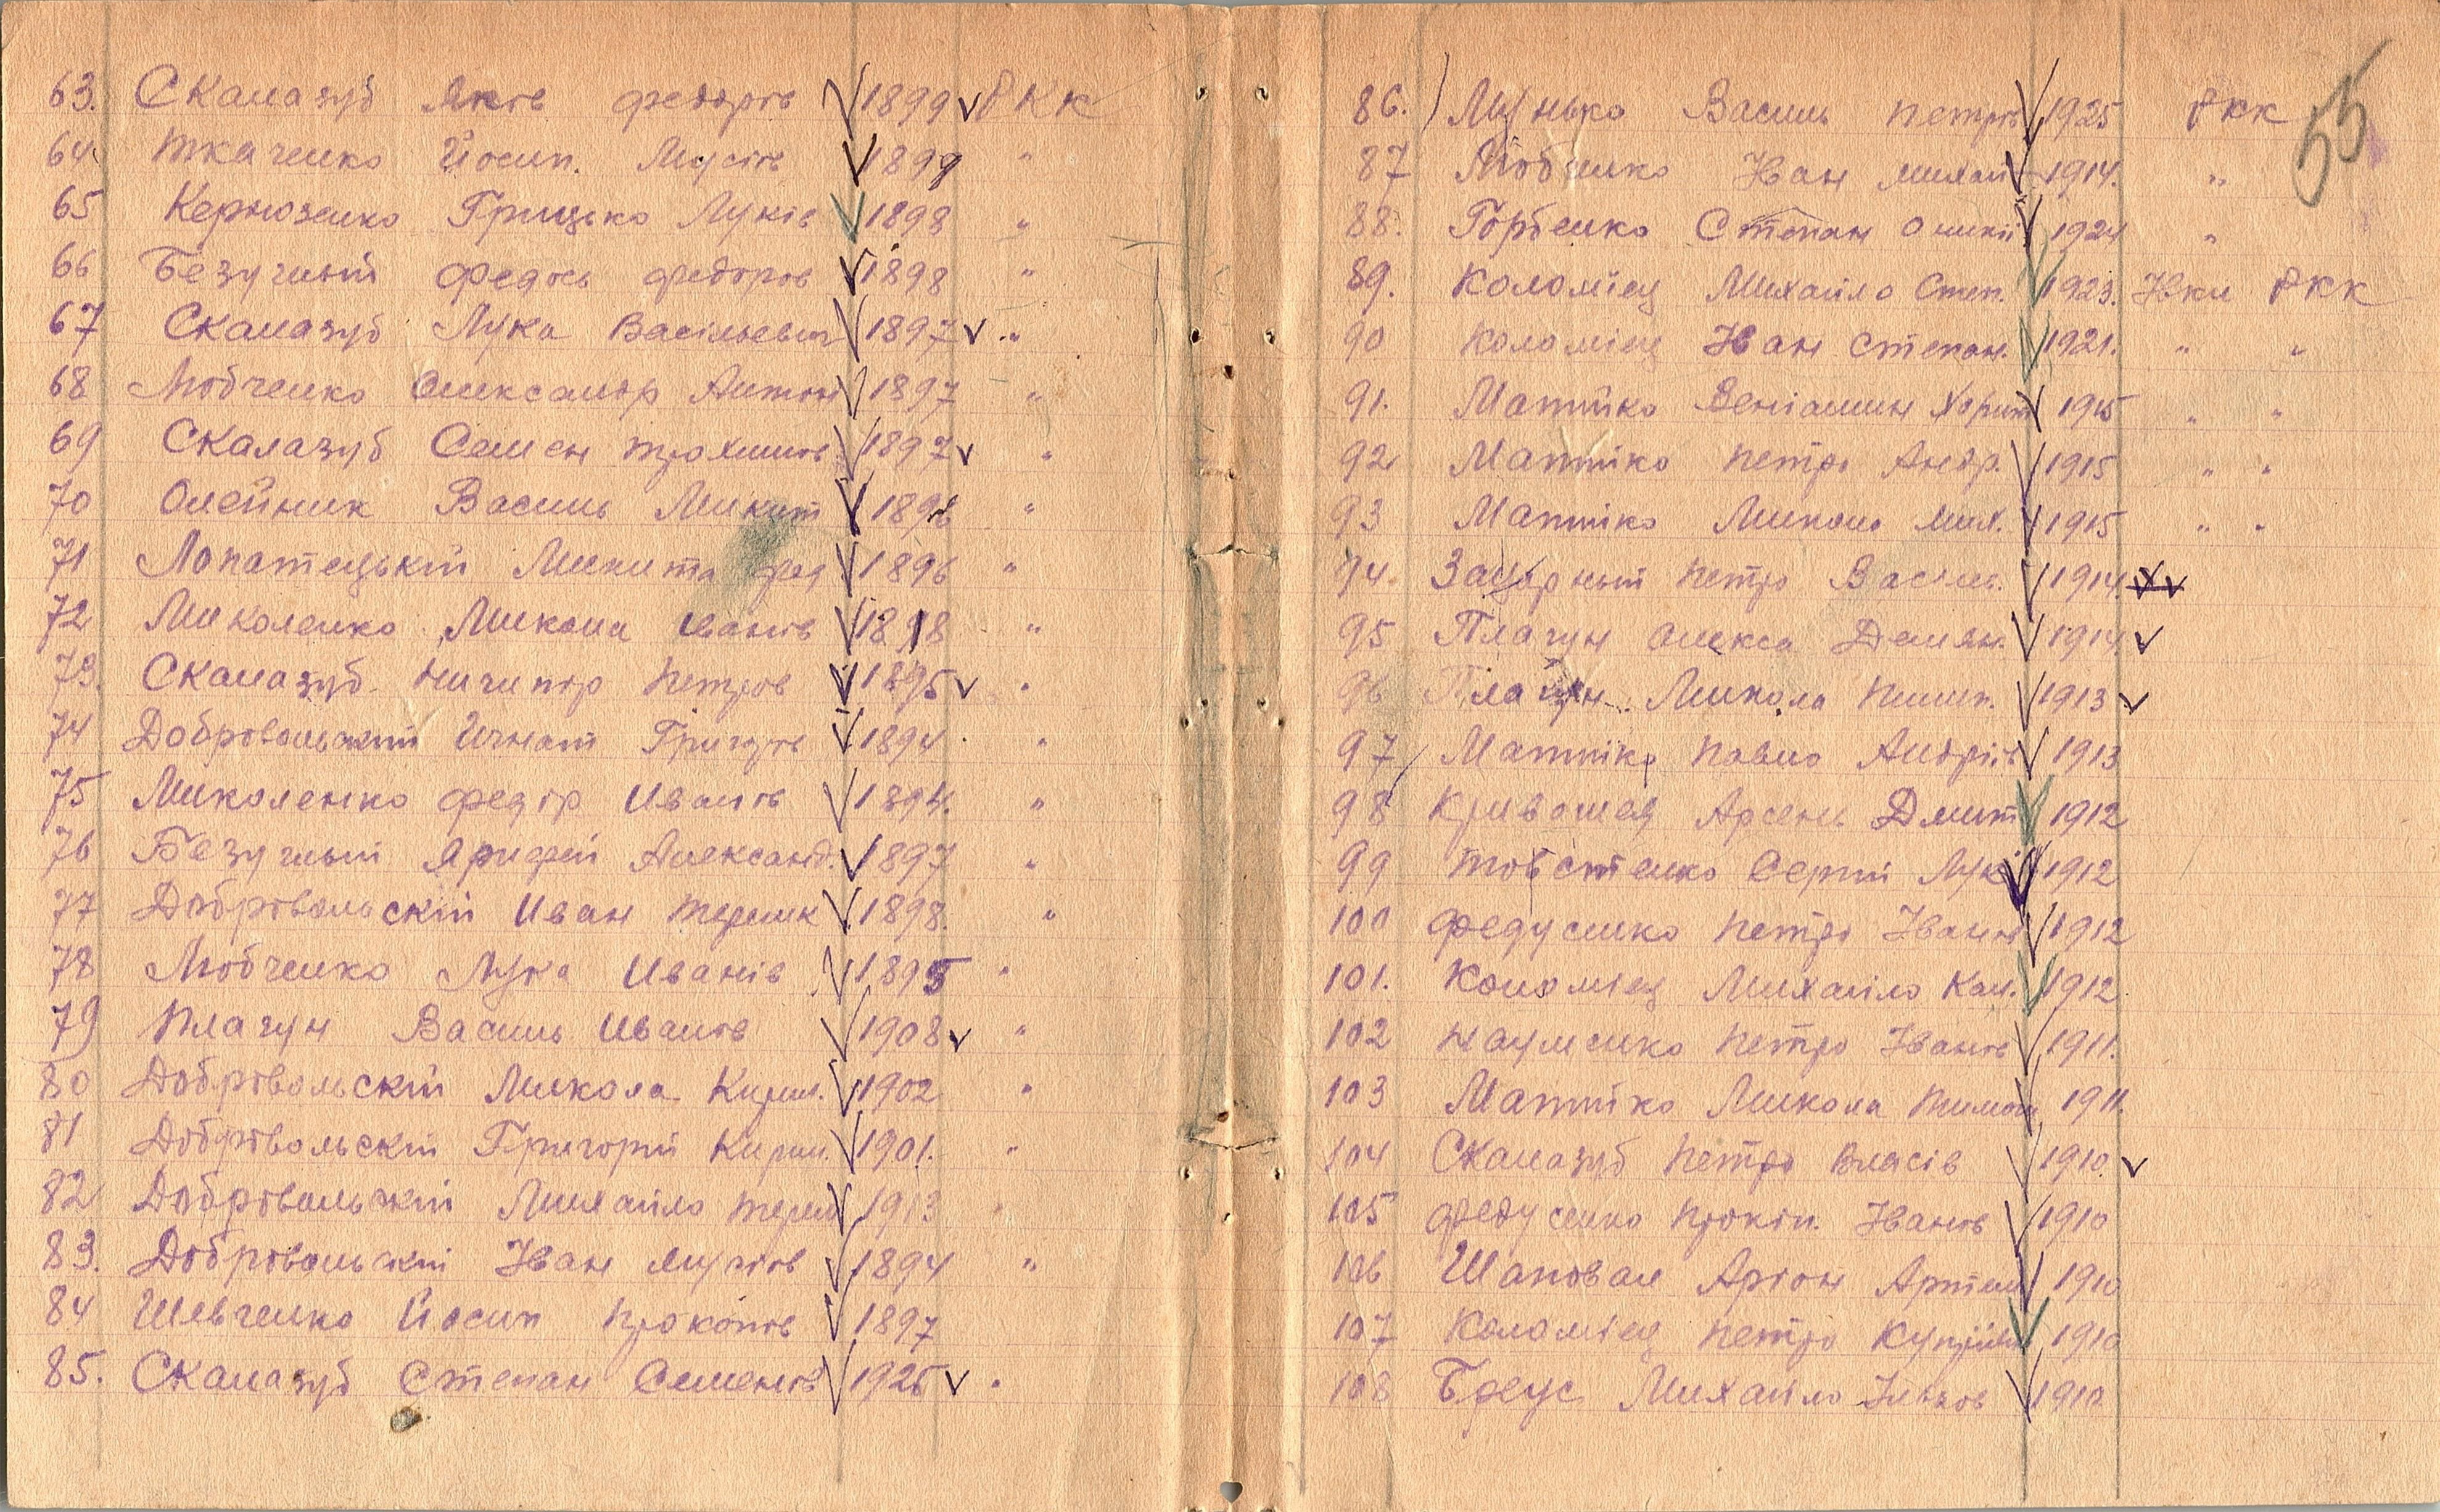 63. Скалазуб Яків Федорів 1899 РКК
64 Ткаченко Йосип. Мусіїв 1899 "
65 Кернозенко Грицько Луків 1898 "
66 Безуглый Федось Федоров 1898 "
67 Скалазуб Лука Васільевич 1897 "
68 Любченко Олександр Антон 1897 "
69 Скалазуб Семен Трохимов 1897 "
70 Олейник Василь Микит "
71 Лопатецькій Микита Фед 1896 "
72 Миколенко Микола Іванів 1898 "
73. Скалазуб Ничипор Петров 1895 "
74 Добровольський Игнат Григорів 1894 "
75 Миколенко Федір Иванів 1894. "
76 Безуглый Александ. 1897 "
77 Добровольскій Иван Терешк 1898. "
78 Любченко Лука Иванів 1895 "
79 Плагун Василь Иванів 1908 "
80 Добровольскій Микола Кирил. 1902 "
81 Добровольскій Григорій Кирил. 1901. "
82 Добровольскій Михайло Тереш 1913 "
83. Добровольскій Іван 1894 "
84 Шевченко Йосип Прокопів 1897
85. Скалазуб Степан Семенів 1926 "
86. Мунько Василь Петрів 1925 РКК
87 Любченко Іван Михай 1914. "
88. Горбенко Степан Оникії 1924 "
89. Коломієц Михайло Степ. 1923. РКК
90 Коломієц Іван Степан. 1921. " "
91. Матійко Веніамин Харит 1915 " "
92 Матійко Петро Андр. 1915 " "
93 Матійко Микола Мих. 1915 " "
94. Петро Васил. 1914.
95 Плагун Олекса Демян. 1914
96 Плагун Микола Пилип. 1913
97 Матійко Павло Андріїв 1913
98 Кривошея Арсень Дмит 1912
99 Товстенко Сергій Лук 1912
100 Федусенко Петро Іванів 1912
101. Коломієц Михайло Кал. 1912.
102 Науменко Петро Іванів 1911.
103 Матійко Микола Тимош 1911.
104 Скалазуб Петро Власів 1910.
105 Федусенко Прокіп. Іванів 1910
106 Шаповал Аріон Артем 1910
107 Коломієц Петро Купріїв 1910
108 Бреус Михайло Ільков 1910
55